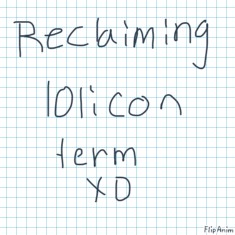 Reclaiming
lolicon
term
XD
FlipAnim